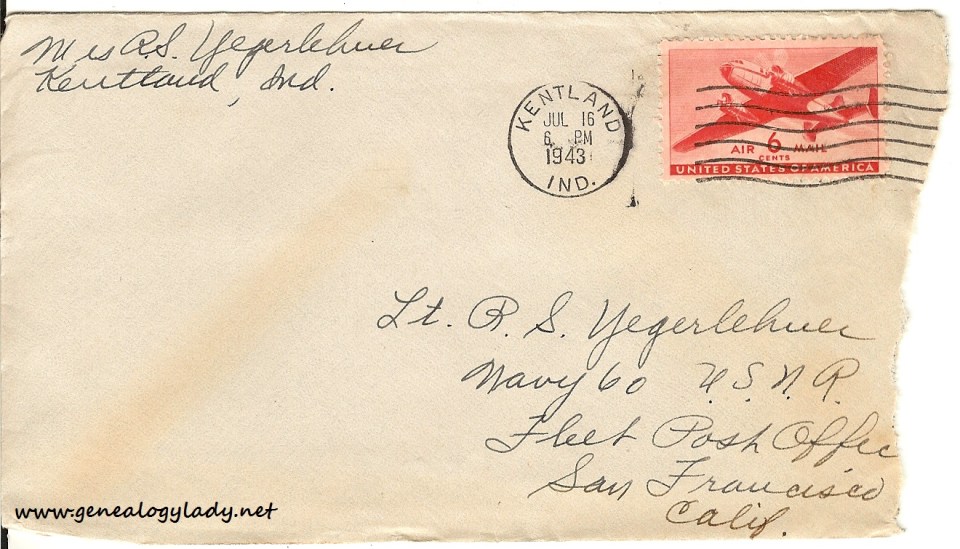 Mrs R.S. Yegerlehner
Kentland, Ind.
KENTLAND
JUL 16
6 PM
1943
IND.
AIR 6 MAIL
CENTS
UNITED STATES OF AMERICA
Lt. R. S. Yegerlehner
Navy 60 U.S.N.R.
Fleet Post Offic
San Francisco
Calif.
www.genealogylady.net